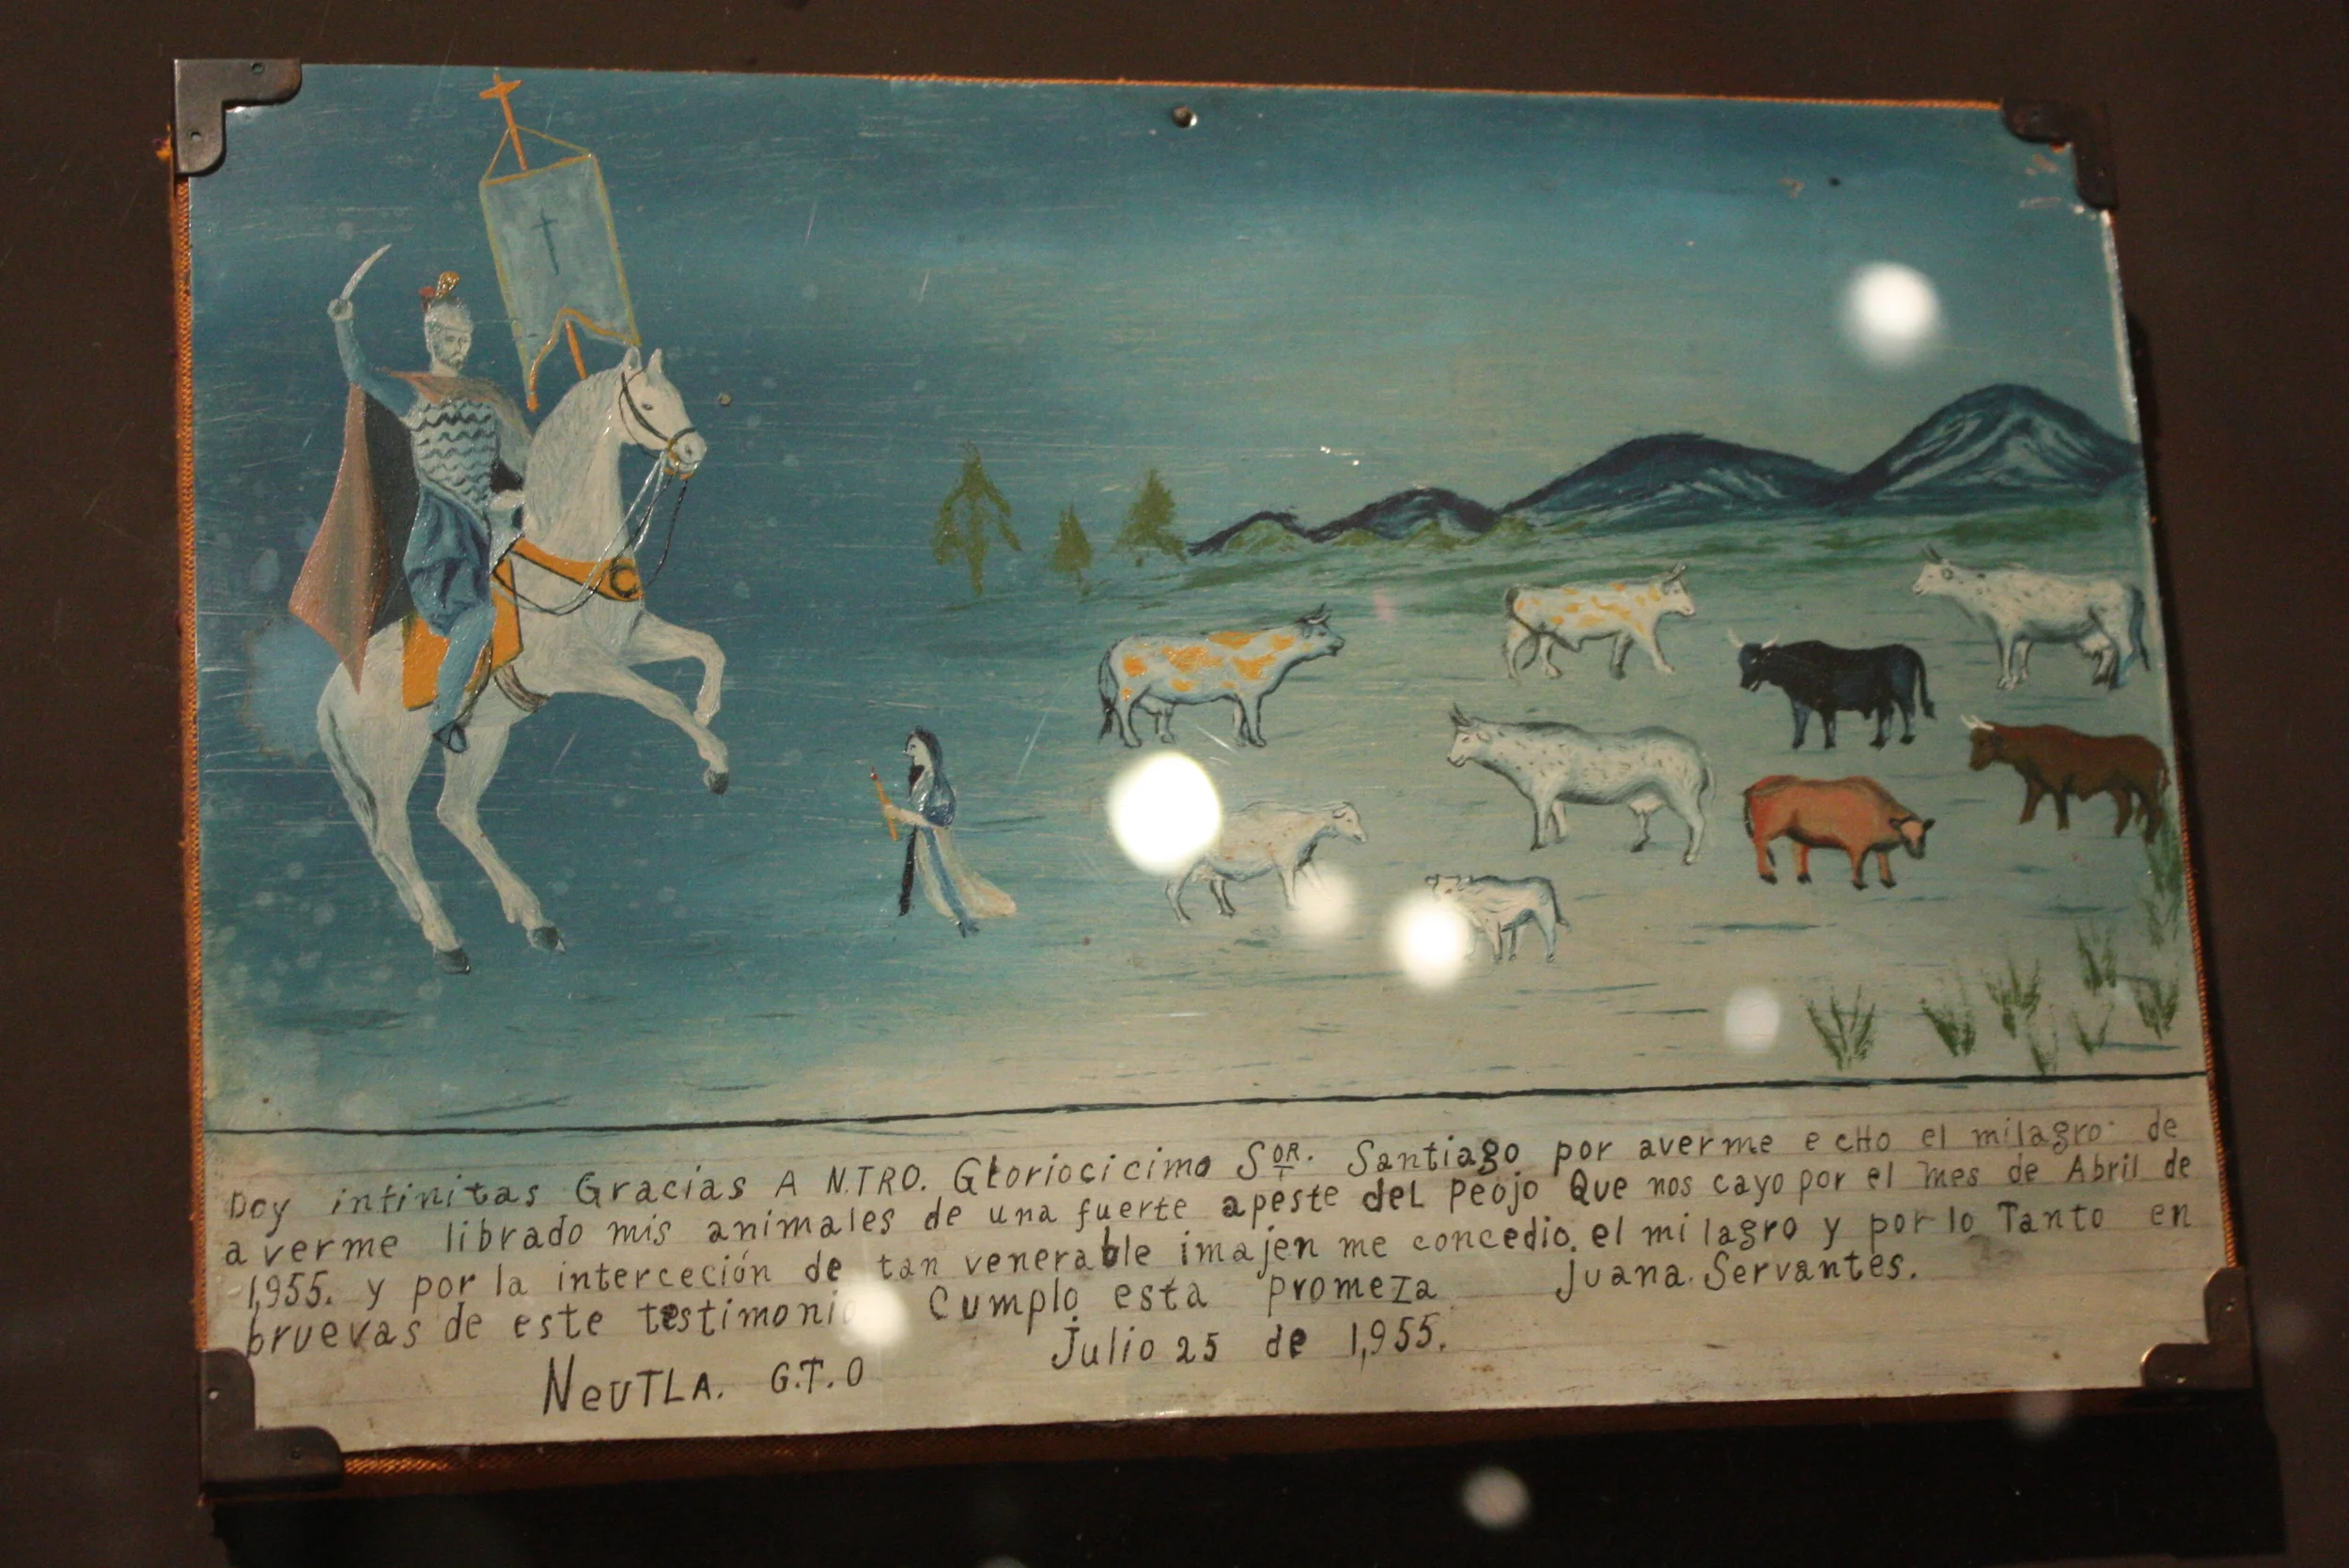 Doy infinitas Gracias A N.TRO. Gloriocicimo SOR. Santiago por averme ecHo el milagro de
averme librado mis animales de una fuerte apeste del peojo Que nos cayo por el mes de Abril de
1,955. y por la interceción de tan venerable imajen me concedio. el milagro y por lo Tanto en
bruevas de este testimonio Cumplo esta promeza Juana. Servantes.
NeUTLA. G.T.O Julio 25 de 1,955.